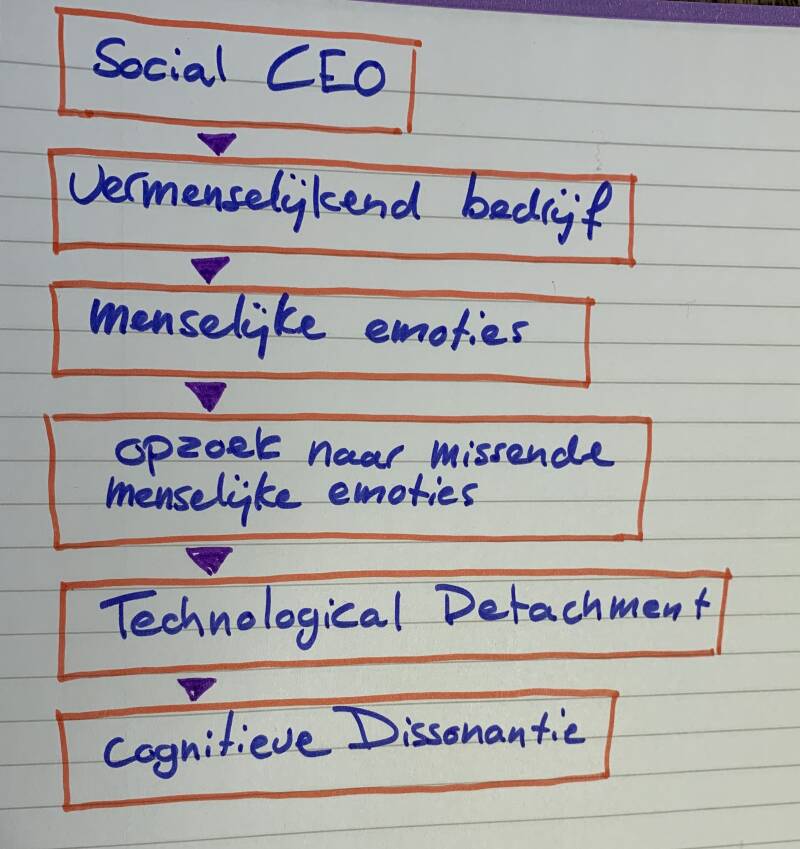 Social CEO
Vermenselijkend bedrijf
menselijke emoties
opzoek naar missende
menselijke emoties
Technological Detachment
Cognitieve Dissonantie